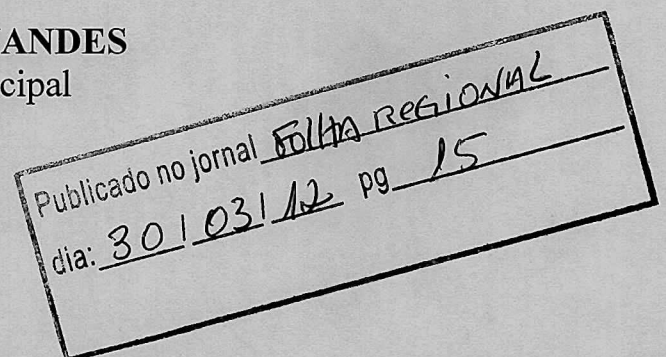 ANDES
cipal
Publicado no jornal FOLHA REGIONAL
dia: 30/03/12 pg 15